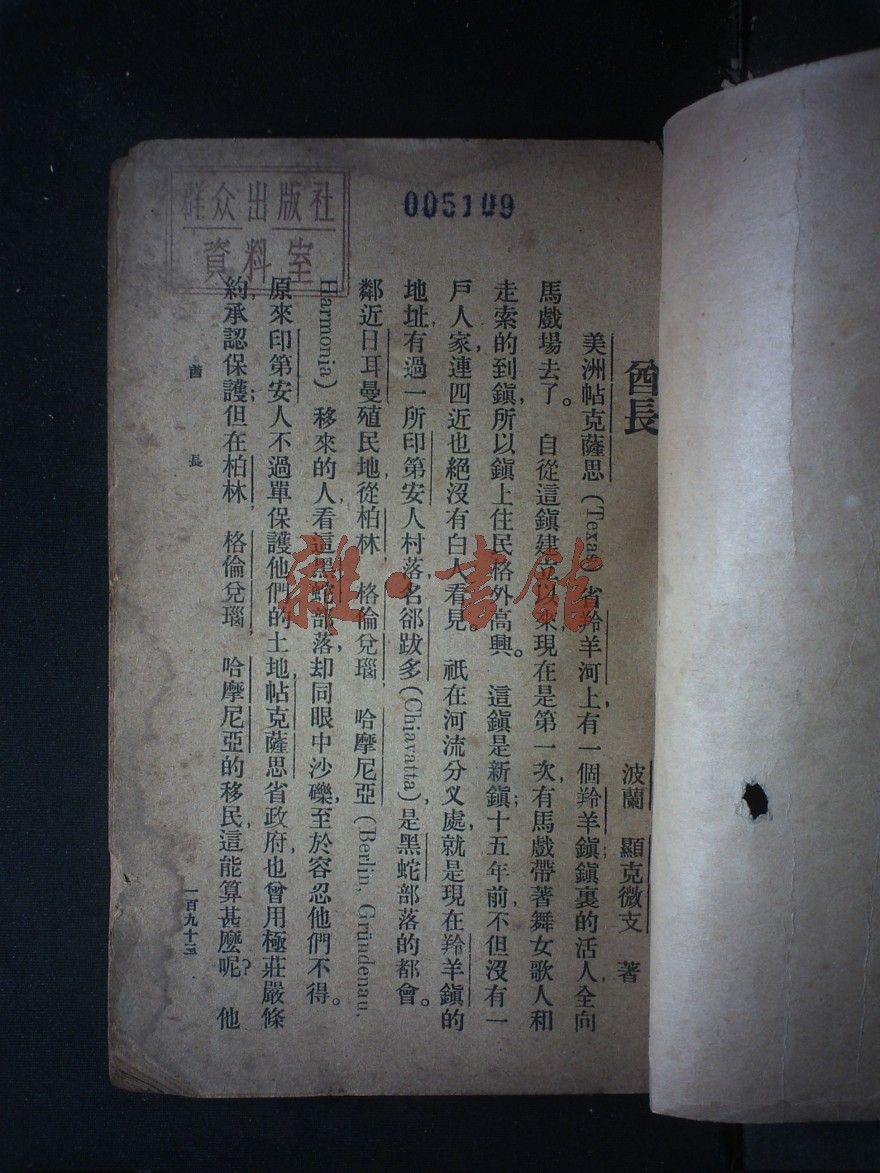 群众出版社
資料室
005109
酋長
波蘭　顯克微支　著
美洲帖克薩思 (Texas) 省羚羊河上，有一個羚羊鎮；鎮裏的活人，全向
馬戲場去了。自從這鎮建立以來，現在是第一次，有馬戲帶著舞女歌人和
走索的到鎮，所以鎮上住民格外高興。這鎮是新鎮；十五年前，不但沒有一
戶人家，連四近也絕沒有白人看見。祇在河流分义處，就是現在羚羊鎮的
地址，有過一所印第安人村落，名郤跋多(Chiavatta)，是黑蛇部落的都會。
鄰近日耳曼殖民地，從柏林，格倫兌瑙，哈摩尼亞 (Berlin, Gründenau,
Harmonia) 移來的人，看這黑蛇部落，却同眼中沙礫，至於容忍他們不得。
原來印第安人不過單保護他們的土地，帖克薩思省政府，也曾用極莊嚴條
約，承認保護；但在柏林，格倫兌瑙，哈摩尼亞的移民，這能算甚麼呢？他
酋　長
一百九十三
雜·書館